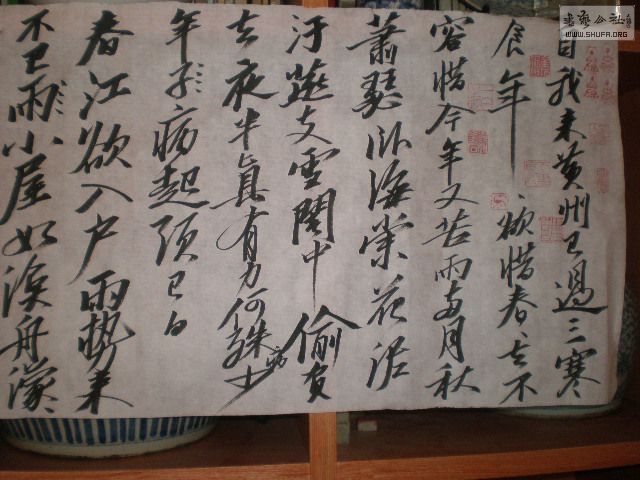 書藝公社
WWW.SHUFA.ORG
自我来黄州已過三寒
食年ヽ欲惜春ヽ去不
容惜今年又苦雨两月秋
蕭瑟卧海棠花泥
汙燕支雪闇中偷負
去夜半真有力何殊少
病
年子病起頭已白
春江欲入户雨势来
不已雨小屋如漁舟濛ヽ